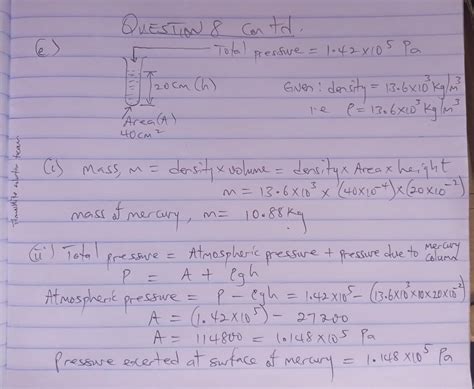 QUESTION 8 Contd.
(e)
Total pressure = 1.42 x 10⁵ Pa
20cm (h)
Given: density = 13.6x10³ kg/m³
i.e ρ = 13.6x10³ kg/m³
Area(A)
40cm²
(i) mass, m = density x volume = density x Area x height
m = 13.6x10³ x (40x10⁻⁴) x (20x10⁻²)
mass of mercury, m = 10.88kg
(ii) Total pressure = Atmospheric pressure + pressure due to mercury column
P = A + ρgh
Atmospheric pressure = P - ρgh = 1.42x10⁵ - (13.6x10³x10x20x10⁻²)
A = (1.42x10⁵) - 27200
A = 114800 = 1.148x10⁵ Pa
Pressure exerted at surface of mercury = 1.148x10⁵ Pa